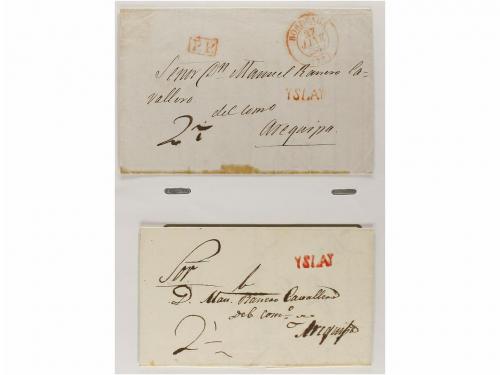 P.P.
BORDEAUX
27
YSLAY
Señor Dn Manuel Ranero Ca-
vallero
del como
Arequipa.
2 r
YSLAY
Sor
D. Man. Ranero Cavallero
del Como
Arequipa
2